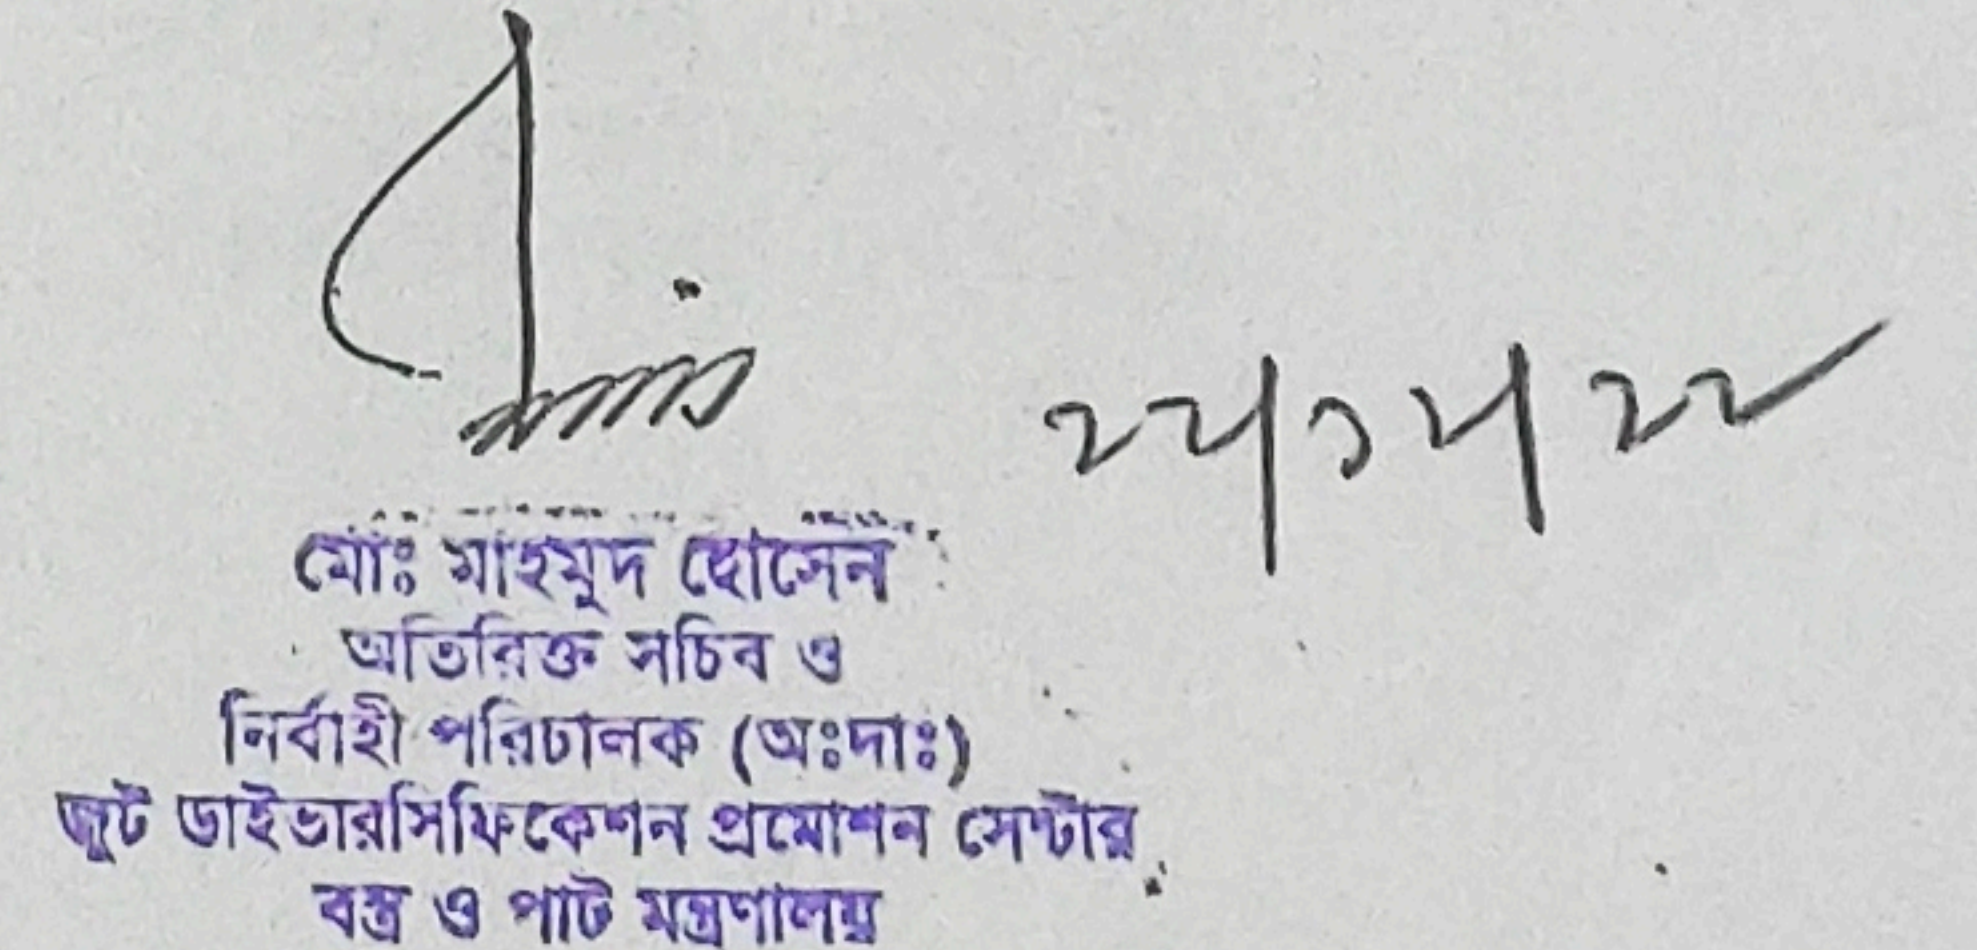 ২২/১২/২২
মোঃ মাহমুদ হোসেন
অতিরিক্ত সচিব ও
নির্বাহী পরিচালক (অঃদাঃ)
জুট ডাইভারসিফিকেশন প্রমোশন সেন্টার
বস্ত্র ও পাট মন্ত্রণালয়